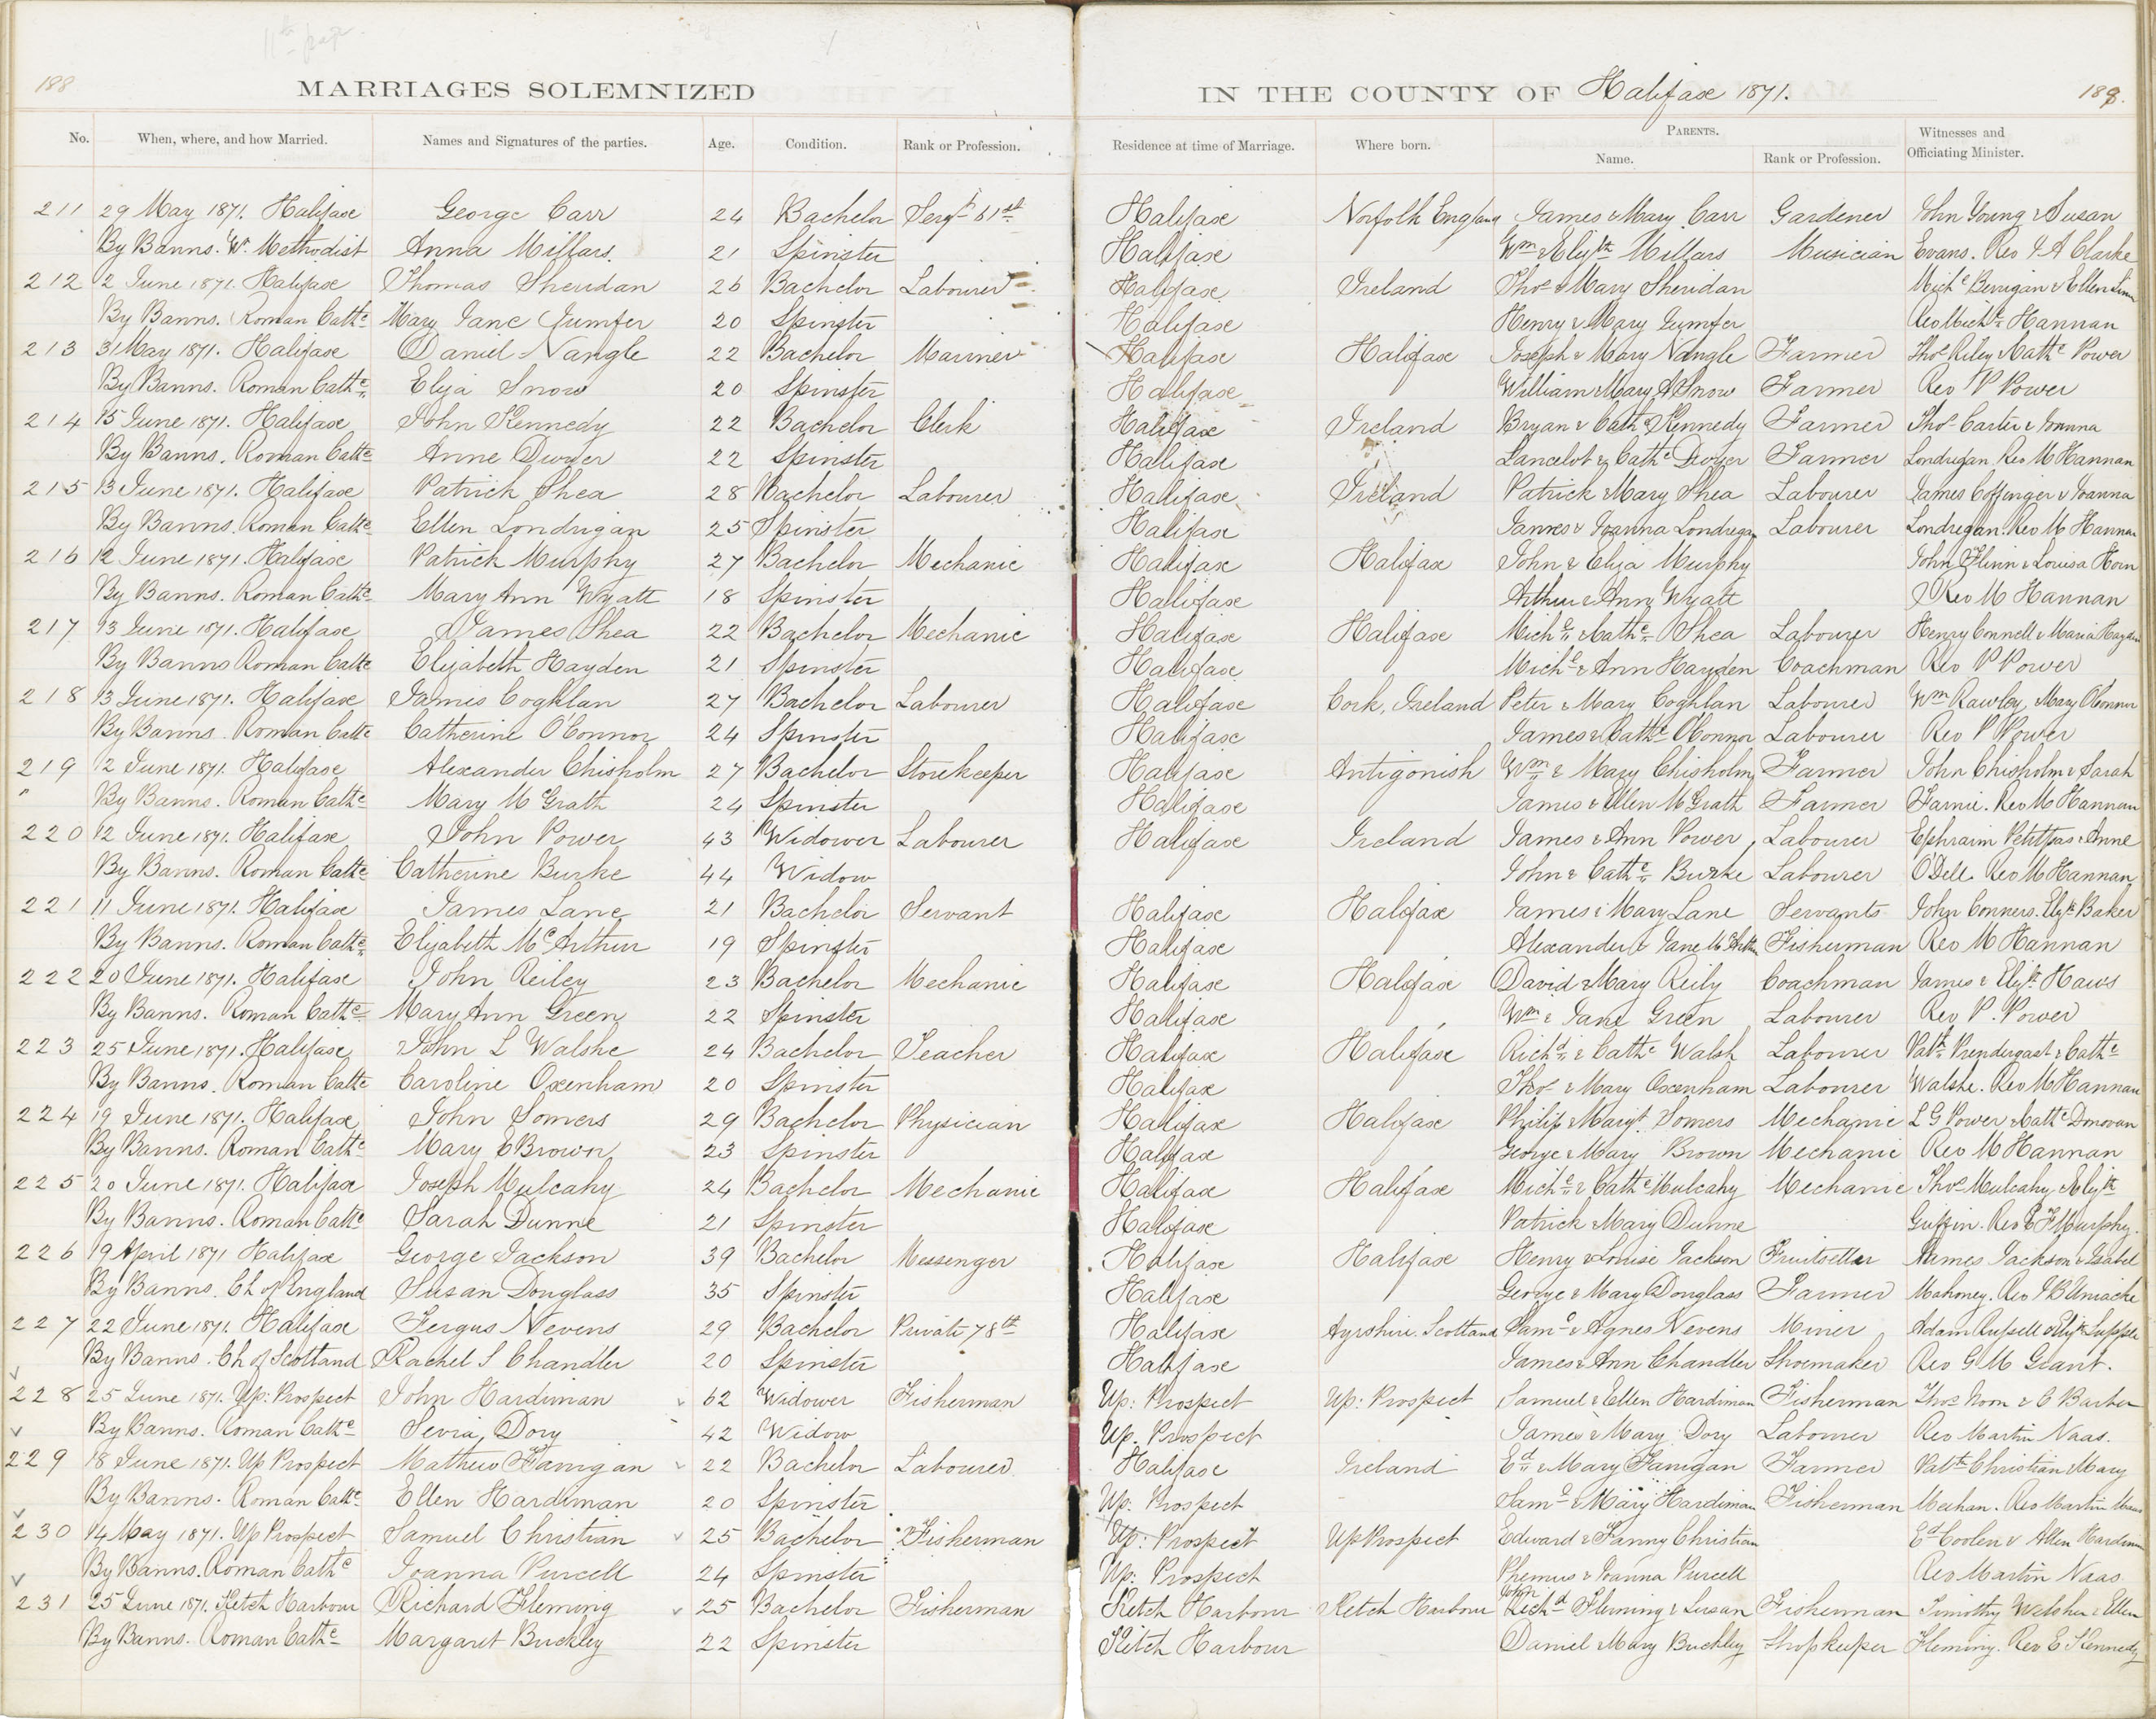 188
MARRIAGES SOLEMNIZED IN THE COUNTY OF Halifax 1871.
No. When, where, and how Married. Names and Signatures of the parties. Age. Condition. Rank or Profession. Residence at time of Marriage. Where born. PARENTS. Name. Rank or Profession. Witnesses and Officiating Minister.
211 29 May 1871. Halifax George Carr 24 Bachelor Sergt 61st Halifax Norfolk England James & Mary Carr Gardener John Young & Susan
By Banns. Wn. Methodist Anna Millars. 21 Spinster Halifax Wm & Elizth Millars Musician Evans. Rev J A Clarke
212 2 June 1871. Halifax Thomas Sheridan 26 Bachelor Labourer Halifax Ireland Thos & Mary Sheridan Michl Berrigan & Ellen
By Banns. Roman Cathc Mary Jane Jumfer 20 Spinster Halifax Henry & Mary Jumfer Rev Michl Hannan
213 31 May 1871. Halifax Daniel Nangle 22 Bachelor Mariner Halifax Halifax Joseph & Mary Nangle Farmer Thos Riley & Cathe Power
By Banns. Roman Cathc Eliza Snow 20 Spinster Halifax William & Mary A Snow Farmer Rev P Power
214 15 June 1871. Halifax John Kennedy 22 Bachelor Clerk Halifax Ireland Bryan & Cathe Kennedy Farmer Thos Carter &
By Banns. Roman Cathc Anne Dwyer 22 Spinster Halifax Lancelot & Cathe Dwyer Farmer Londrigan Rev M Hannan
215 13 June 1871. Halifax Patrick Shea 28 Bachelor Labourer Halifax Ireland Patrick & Mary Shea Labourer James Coffinger & Joanna
By Banns. Roman Cathc Ellen Londrigan 25 Spinster Halifax James & Joanna Londregan Labourer Londregan. Rev M Hannan
216 12 June 1871. Halifax Patrick Murphy 27 Bachelor Mechanic Halifax Halifax John & Eliza Murphy John Flinn & Louisa Horn
By Banns. Roman Cathc Mary Ann Wyatt 18 Spinster Halifax Arthur & Ann Wyatt Rev M Hannan
217 13 June 1871. Halifax James Shea 22 Bachelor Mechanic Halifax Halifax Michl & Cathe Shea Labourer Henry Connell & Maria Hayden
By Banns Roman Cathc Elizabeth Hayden 21 Spinster Halifax Michl & Ann Hayden Coachman Rev P Power
218 13 June 1871. Halifax James Coghlan 27 Bachelor Labourer Halifax Cork, Ireland Peter & Mary Coghlan Labourer Wm Rawley, Mary O'Connor
By Banns. Roman Cathc Catherine O'Connor 24 Spinster Halifax James & Cathe O'Connor Labourer Rev P Power
219 12 June 1871. Halifax Alexander Chisholm 27 Bachelor Storekeeper Halifax Antigonish Wm & Mary Chisholm Farmer John Chisholm & Sarah
" By Banns. Roman Cathc Mary McGrath 24 Spinster Halifax James & Ellen McGrath Farmer Farnie. Rev M Hannan
220 12 June 1871. Halifax John Power 43 Widower Labourer Halifax Ireland James & Ann Power Labourer Ephraim Petitpas & Anne
By Banns. Roman Cathc Catherine Burke 44 Widow John & Cathe Burke Labourer O'Dell. Rev M Hannan
221 11 June 1871. Halifax James Lane 21 Bachelor Servant Halifax Halifax James & Mary Lane Servants John Conners. Elizth Baker
By Banns. Roman Cathc Elizabeth McArthur 19 Spinster Halifax Alexander & Jane McArthur Fisherman Rev M Hannan
222 20 June 1871. Halifax John Reiley 23 Bachelor Mechanic Halifax Halifax David & Mary Reily Coachman James & Elizth Haws
By Banns. Roman Cathc Mary Ann Green 22 Spinster Halifax Wm & Jane Green Labourer Rev P. Power
223 25 June 1871. Halifax John L Walshe 24 Bachelor Teacher Halifax Halifax Richd & Cathe Walsh Labourer Patk Prendergast & Cathe
By Banns. Roman Cathc Caroline Oxenham 20 Spinster Halifax Thos & Mary Oxenham Labourer Walshe. Rev M Hannan
224 19 June 1871. Halifax John Somers 29 Bachelor Physician Halifax Halifax Philip & Margt Somers Mechanic L G Power & Cathe Donovan
By Banns. Roman Cathc Mary E Brown 23 Spinster Halifax George & Mary Brown Mechanic Rev M Hannan
225 20 June 1871. Halifax Joseph Mulcahy 24 Bachelor Mechanic Halifax Halifax Michl & Cathe Mulcahy Mechanic Thos Mulcahy & Elizth
By Banns. Roman Cathc Sarah Dunne 21 Spinster Halifax Patrick & Mary Dunne Griffin. Rev E F Murphy.
226 19 April 1871 Halifax George Jackson 39 Bachelor Messenger Halifax Halifax Henry & Louise Jackson Fruitseller James Jackson & Isabel
By Banns. Ch of England Susan Douglass 35 Spinster Halifax George & Mary Douglass Farmer Mahoney. Rev J B Uniacke
227 22 June 1871. Halifax Fergus Nevens 29 Bachelor Private 78th Halifax Ayrshire. Scotland Saml & Agnes Nevens Miner Adam Russell & Elizth Supple
By Banns. Ch of Scotland Rachel S Chandler 20 Spinster Halifax James & Ann Chandler Shoemaker Rev G M Grant.
228 25 June 1871. Up: Prospect John Hardiman 62 Widower Fisherman Up: Prospect Up: Prospect Samuel & Ellen Hardiman Fisherman Thos Noon & C Barber
By Banns. Roman Cathc Sevia, Dory 42 Widow Up. Prospect James & Mary Dory Labourer Rev Martin Naas.
229 18 June 1871. Up Prospect Mathew Fanigan 22 Bachelor Labourer Halifax Ireland Ed & Mary Fanigan Farmer Patk Christian & Mary
By Banns. Roman Cathc Ellen Hardiman 20 Spinster Up: Prospect Saml & Mary Hardiman Fisherman Meehan. Rev Martin Naas
230 14 May 1871. Up Prospect Samuel Christian 25 Bachelor Fisherman Up: Prospect Up Prospect Edward & Fanny Christian Ed Coolen & Allen Hardiman
By Banns. Roman Cathc Joanna Purcell 24 Spinster Up: Prospect Phemus & Joanna Purcell Rev Martin Naas.
231 25 June 1871. Ketch Harbour Richard Fleming 25 Bachelor Fisherman Ketch Harbour Ketch Harbour Richd Fleming & Susan Fisherman Timothy Welsher & Ellen
By Banns. Roman Cathc Margaret Buckley 22 Spinster Ketch Harbour Daniel & Mary Buckley Shopkeeper Fleming. Rev E Kennedy